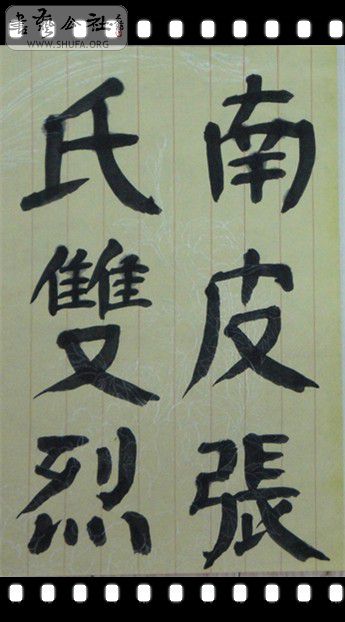 南皮張
氏雙烈
書藝公社
WWW.SHUFA.ORG